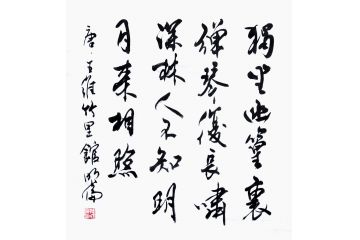 獨坐幽篁裏
彈琴復長嘯
深林人不知明
月来相照
唐·王維竹里館